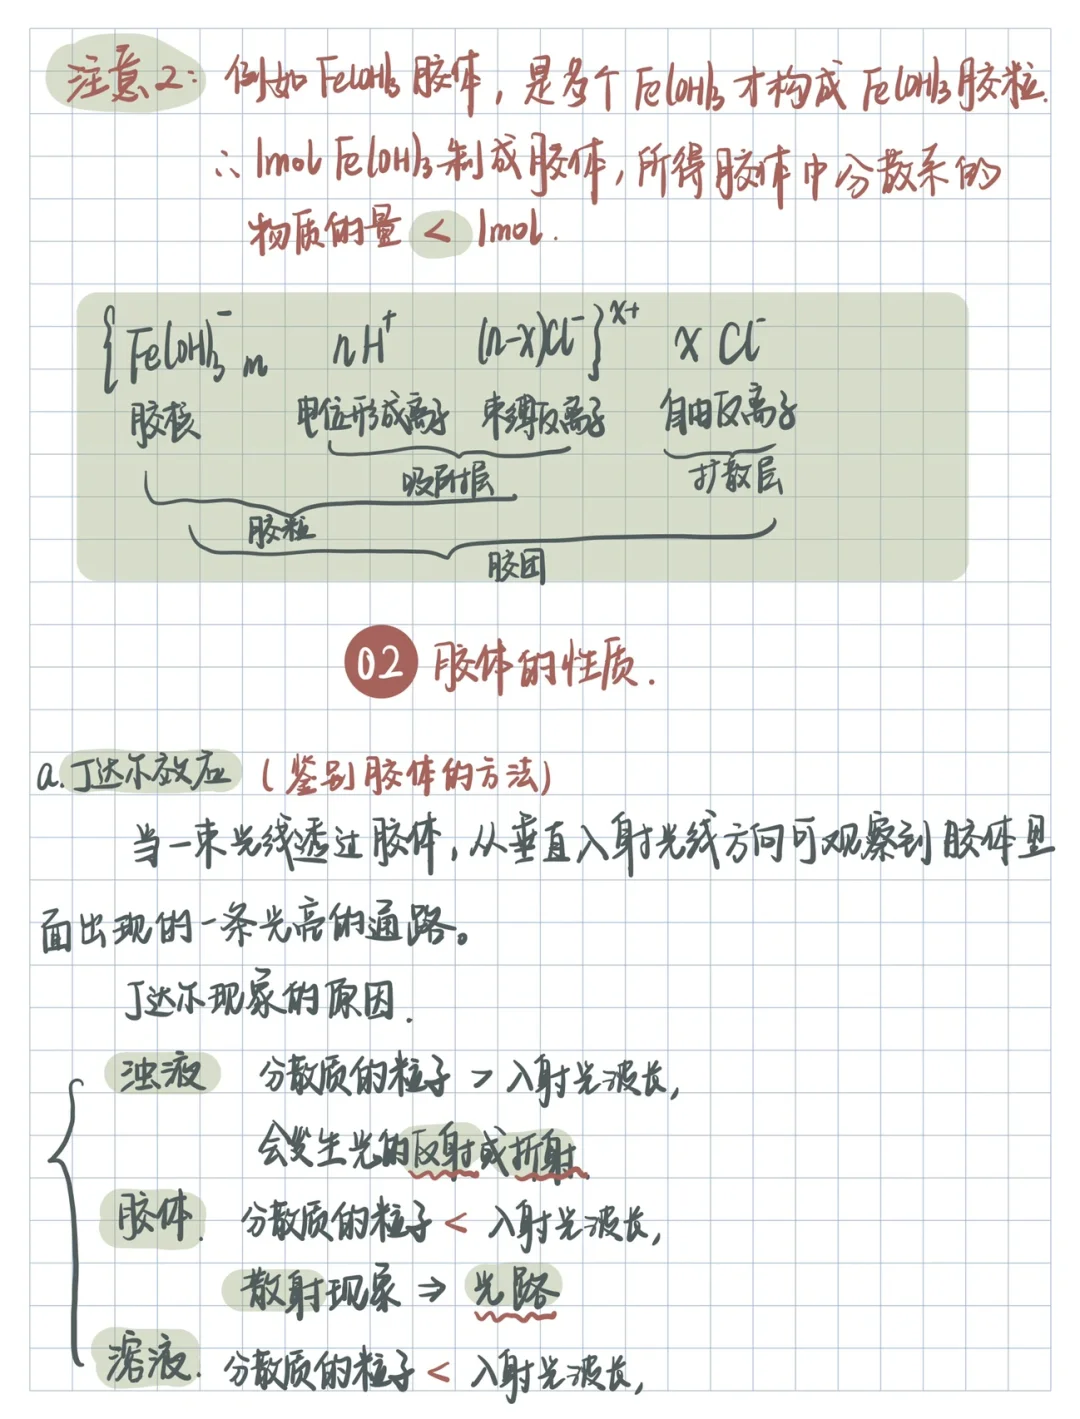 注意2: 例如 Fe(OH)3 胶体，是多个 Fe(OH)3 才构成 Fe(OH)3 胶粒.
∴ 1mol Fe(OH)3 制成胶体，所得胶体中分散系的
物质的量 < 1mol.
{Fe(OH)3⁻ m nH⁺ (n-x)Cl⁻}ˣ⁺ x Cl⁻
胶核 电位形成离子 束缚反离子 自由反离子
吸附层 扩散层
胶粒
胶团
02 胶体的性质.
a. 丁达尔效应 (鉴别胶体的方法)
当一束光线透过胶体，从垂直入射光线方向可观察到胶体里
面出现的一条光亮的通路。
丁达尔现象的原因.
浊液 分散质的粒子 > 入射光波长，
会发生光的反射或折射
胶体. 分散质的粒子 < 入射光波长，
散射现象 ⇒ 光路
溶液. 分散质的粒子 < 入射光波长，